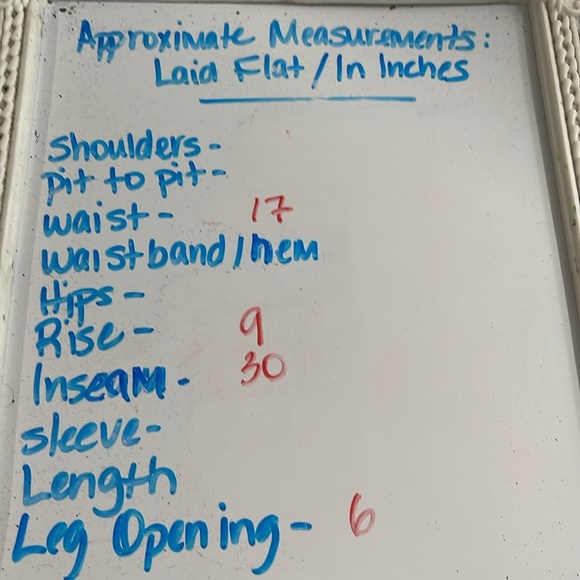 Approximate Measurements:
Laid Flat/In Inches
Shoulders-
pit to pit-
waist- 17
waistband/hem
Hips-
Rise- 9
Inseam- 30
sleeve-
Length
Leg Opening- 6